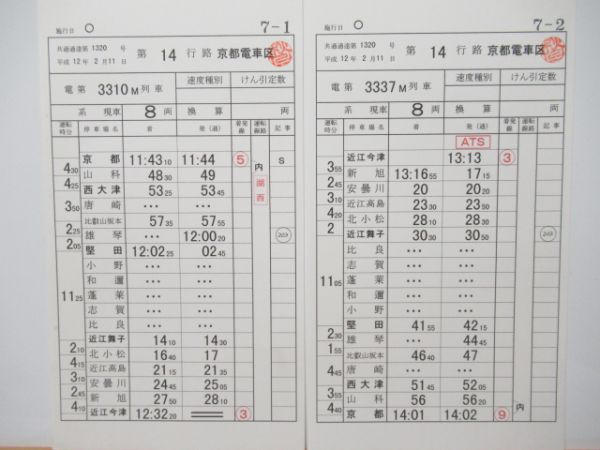 施行日 ○
7-1
共通通達第 1320 号
平成 12 年 2 月 11 日
第 14 行路 京都電車区
電 第 3310M 列 車
速度種別 けん引定数
系 現車 8 両 換 算 両
運転時分 停車場名 着 発(通) 着発線 運転線路 記事
京都 11:43 10 11:44 ⑤ 内 S
4 30
山科 48 30 49
4 25
西大津 53 25 53 45 湖西
唐崎 … …
3 50
比叡山坂本 57 35 57 55
2 25
雄琴 … 12:00 20
2 05
堅田 12:02 25 02 45
小野 … …
和邇 … …
11 25
蓬莱 … …
志賀 … …
比良 … …
近江舞子 14 10 14 30
2 10
北小松 16 40 17
4 15
近江高島 21 15 21 35
3 10
安曇川 24 45 25 05
2 45
新旭 27 50 28 10
4 10
近江今津 12:32 20 ③
施行日 ○
7-2
共通通達第 1320 号
平成 12 年 2 月 11 日
第 14 行路 京都電車区
電 第 3337M 列 車
速度種別 けん引定数
系 現車 8 両 換 算 両
運転時分 停車場名 着 発(通) 着発線 運転線路 記事
ATS
近江今津 13:13 ③
3 55
新旭 13:16 55 17 15
2 45
安曇川 20 20 20
3 10
近江高島 23 30 23 50
4 20
北小松 28 10 28 30
2
近江舞子 30 30 30 50
比良 … …
志賀 … …
11 05
蓬莱 … …
和邇 … …
小野 … …
堅田 41 55 42 15
2 30
雄琴 … 44 45
1 55
比叡山坂本 46 40 47
唐崎 … …
4 45
西大津 51 45 52 05
3 55
山科 56 56 20
4 40
京都 14:01 14:02 ⑨ 内